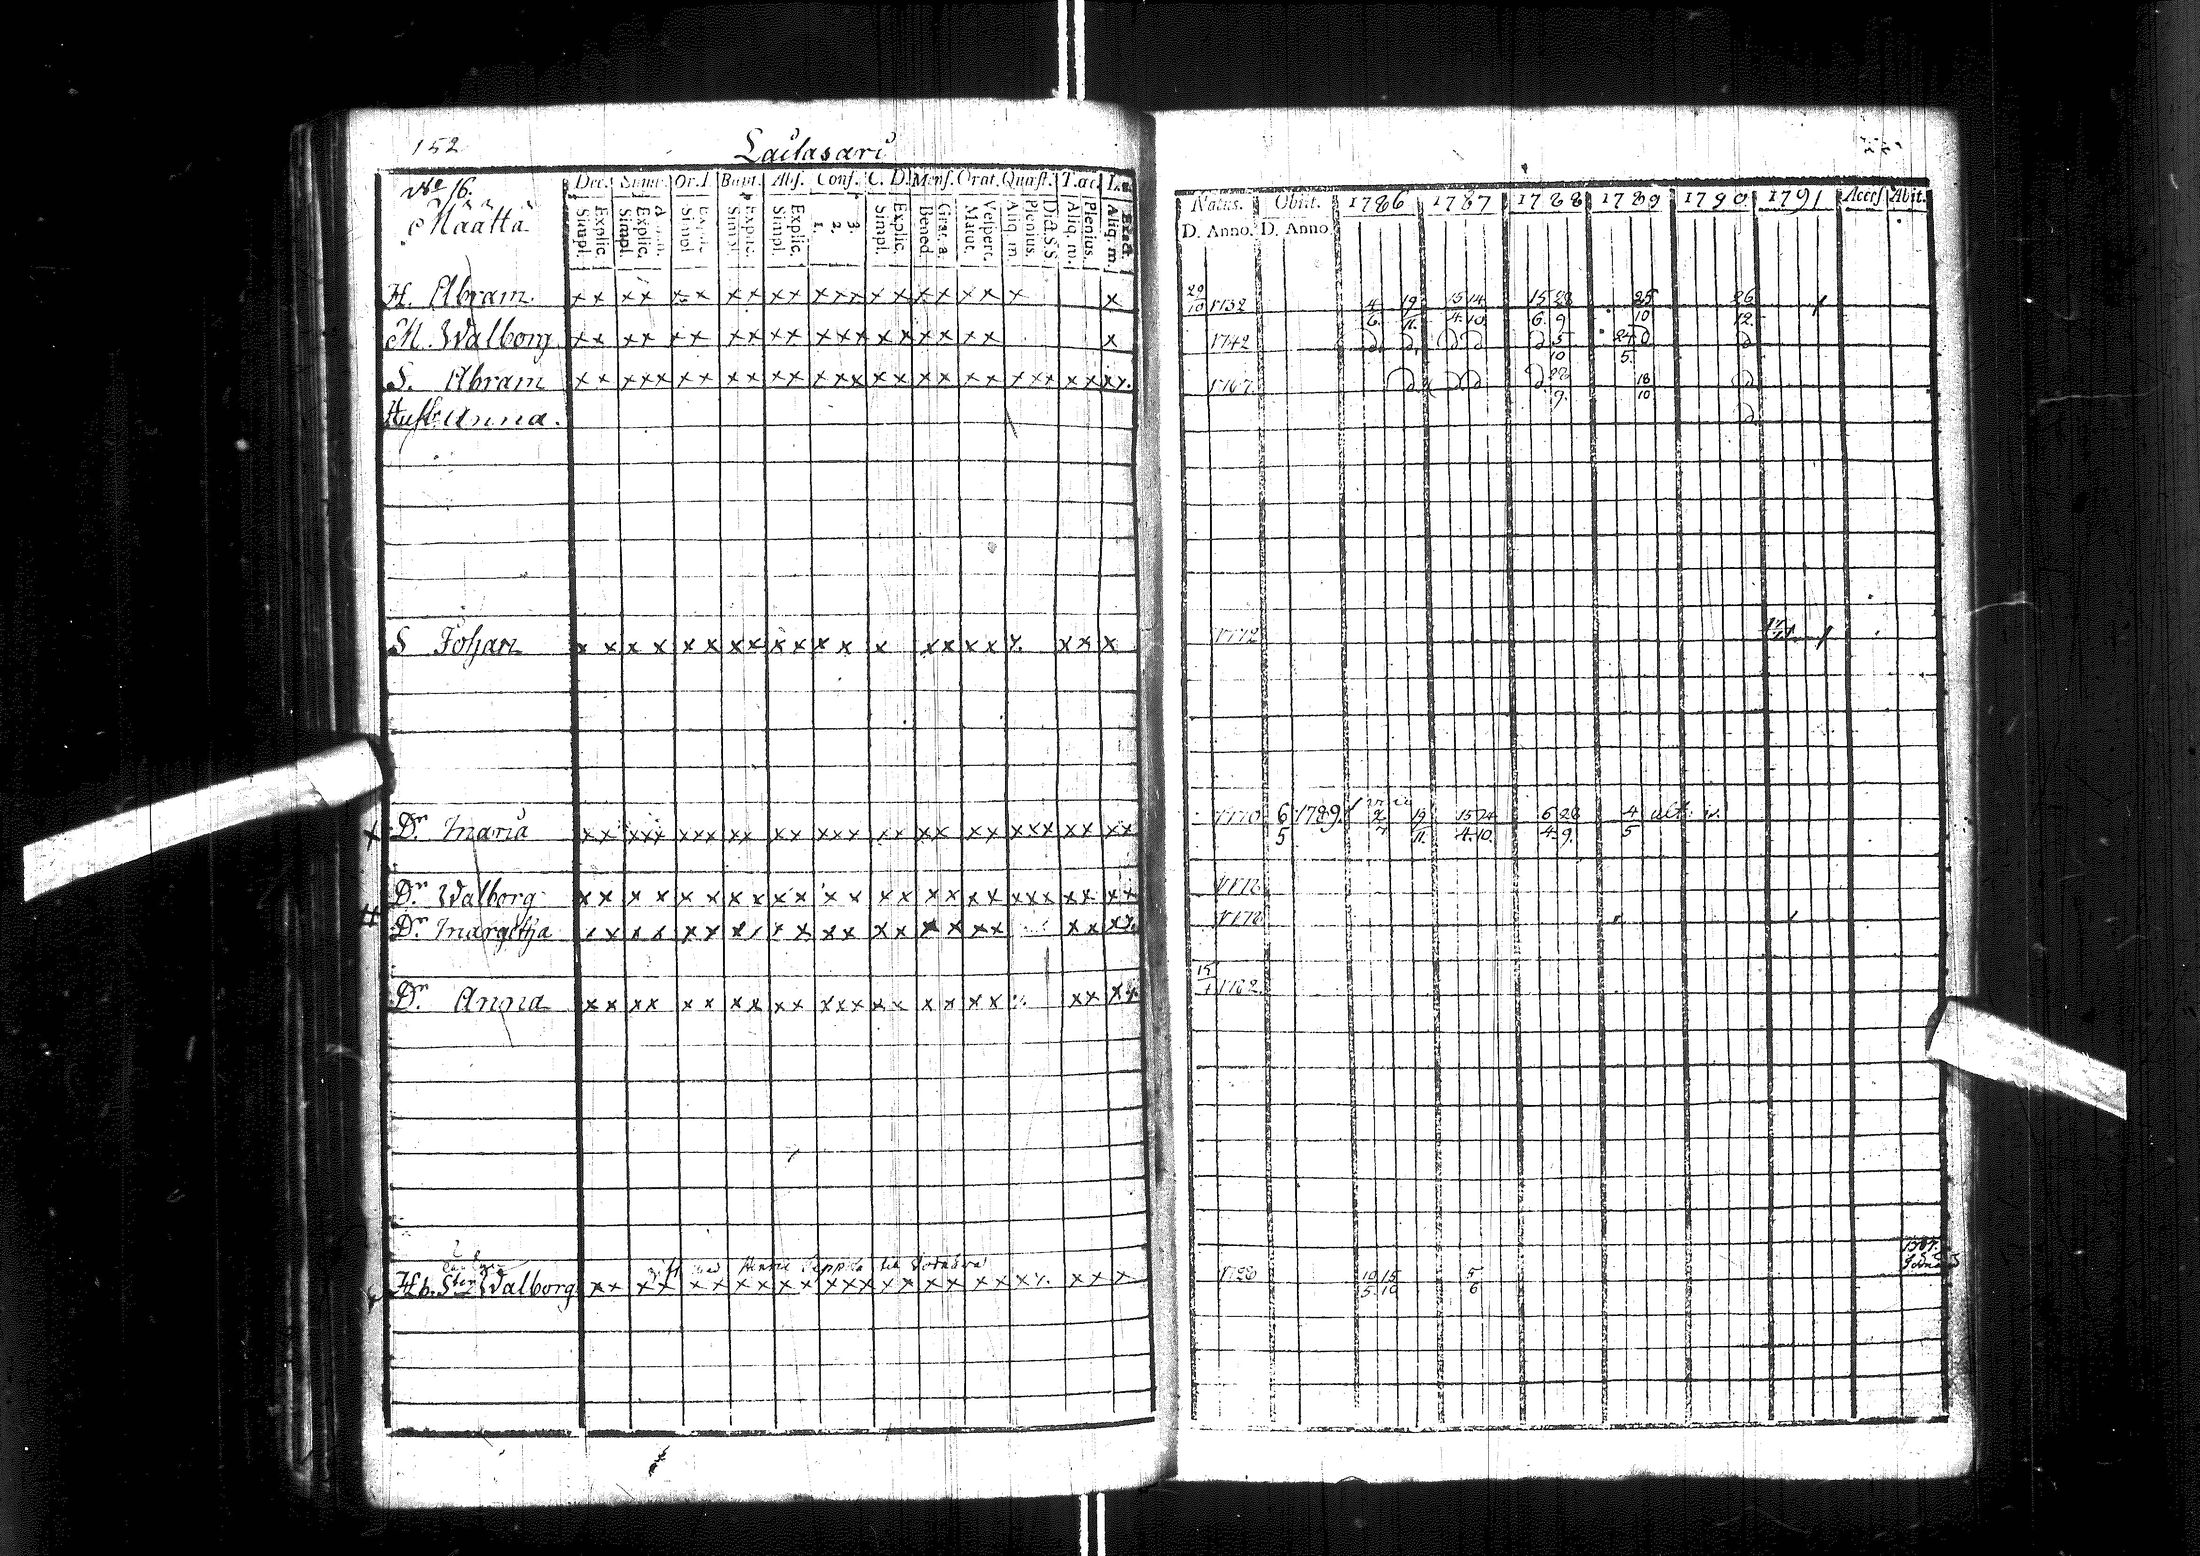 152
Lailasari
No 16.
Määttä
Dec. Symb. Or. D. Bapt. Abs. Conf. C. D. Mens. Orat. Quæst. T. œc.
Simpl. Explic. Simpl. Explic. Simpl. Simpl. Explic. Simpl. Explic. 1. 2. 3. Simpl. Explic. Bened. Grat. a. Matut. Vespert. Aliq. m. Plenius. Dict. S. S. Aliq. m. Plenius. Aliq. m. Exact.
H. Abram. x x x x x x x x x x x x x x x x x x x x x
M. Walborg x x x x x x x x x x x x x x x x x x x x
S. Abram x x x x x x x x x x x x x x x x x x x x x x x x x x x
Hust. Anna.
S Johan x x x x x x x x x x x x x x x x x x x x x
Dr Maria x x x x x x x x x x x x x x x x x x x x x x x x x x x x
Dr. Walborg x x x x x x x x x x x x x x x x x x x x x x x x x
Dr. Margetha x x x x x x x x x x x x x x x x x x x x x x
Dr. Anna x x x x x x x x x x x x x x x x x x x x x x x
med Henric Seppä till
Hb. Walborg x x x x x x x x x x x x x x x x x x x x x x x x
Natus. Obiit. 1786 1787 1788 1789 1790 1791 Access Abit.
D. Anno. D. Anno.
29/10 1732 4/6 19/11 15/4 14/10 15/6 28/9 25/10 26/12
1742 5/10 24/5
1767. 28/9 18/10
1772
1770 6/5 1789. 2/7 19/11. 15/4 24/10. 6/4 28/9. 4/5
1778
15 1782.
1787.
1728 10/5 15/10 5/6